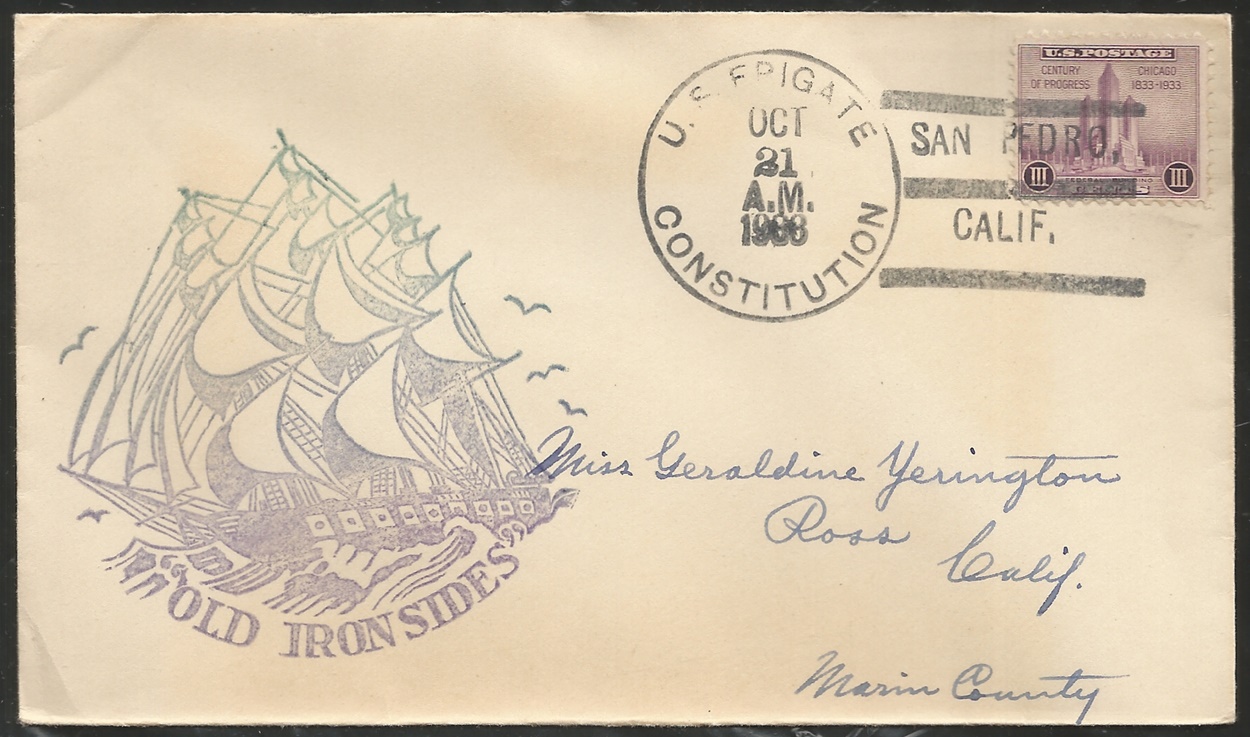 U.S. FRIGATE
OCT
21
A.M.
1933
CONSTITUTION
SAN PEDRO,
CALIF.
U.S. POSTAGE
CENTURY OF PROGRESS
CHICAGO 1833-1933
III
III
FEDERAL BUILDING
CENTS
Miss Geraldine Yerington
Ross
Calif.
Marin County
"OLD IRONSIDES"